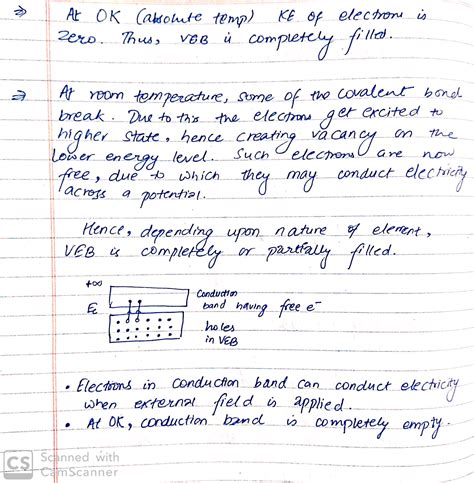 ⇒ At OK (absolute temp) KE of electrons is
zero. Thus, VEB is completely filled.
⇒ At room temperature, some of the covalent bond
break. Due to this the electrons get excited to
higher state, hence creating vacancy on the
lower energy level. Such electrons are now
free, due to which they may conduct electricity
across a potential.
Hence, depending upon nature of element,
VEB is completely or partfally filled.
+∞
Conduction
band having free e⁻
Ec
holes
in VEB
• Electrons in conduction band can conduct electricity
when external field is applied.
• At OK, conduction band is completely empty.
CS Scanned with
CamScanner